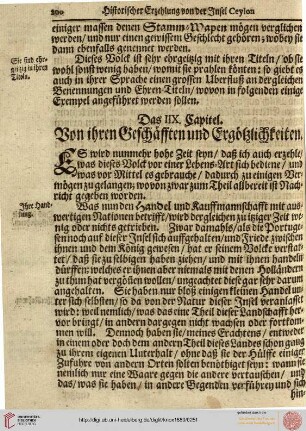 290 Historischer Erzehlung von der Insel Ceylon
einiger massen denen Stamm-Wapen mögen verglichen
werden/ und nur einen gewissen Geschlecht gehören/ wobey sie
dann ebenfalls genennet werden.
Sie sind ehr-
geitzig in ihren
Titeln.
Dieses Volck ist sehr ehrgeitzig mit ihren Tituln/ ob sie
wohl sonst wenig haben/ womit sie prahlen könten: so giebt es
auch in ihrer Sprache einen grossen Uberfluß an dergleichen
Benennungen und Ehren-Tituln/ wovon in folgenden einige
Exempel angeführet werden sollen.
Das IIX. Capitel.
Von ihren Geschäfften und Ergötzlichkeiten.
ES wird nunmehr hohe Zeit seyn/ daß ich auch erzehle/
was dieses Volck vor einer Lebens-Art sich bediene/ und
was vor Mittel es gebrauche/ dadurch zu einigen Ver-
mögen zu gelangen; wovon zwar zum Theil allbereit ist Nach-
richt gegeben worden.
Ihre Hand-
lung.
Was nun den Handel und Kauffmannschafft mit aus-
wertigen Nationen betrifft/ wird dergleichen zu itziger Zeit we-
nig oder nichts getrieben. Zwar damahls/ als die Portuge-
sen noch auf dieser Insel sich auffgehalten/ und Friede zwischen
ihnen und den König gewesen/ hat er seinen Völckern versta-
tet/ daß sie zu selbigen haben ziehen/ und mit ihnen handeln
dürffen; welches er ihnen aber niemals mit denen Holländern
zu thun hat vergönnen wollen/ ungeachtet diese gar sehr darum
angehalten. Sie haben nur bloß einigen kleinen Handel un-
ter sich selbsten/ so da von der Natur dieser Insel veranlasset
wird: weil nemlich/ was das eine Theil dieser Landschafft her-
vor bringt/ in andern dargegen nicht wachsen oder fortkom-
men will. Dennoch haben sie/ meines Erachtens/ entweder
in einem oder doch dem andern Theil dieses Landes schon gnug
zu ihrem eigenen Unterhalt/ ohne daß sie der Hülffe einiger
Zufuhre von andern Orten solten benöthiget seyn: wann sie
nemlich nur eine Waare gegen die andere vertauschen/ und
das/ was sie haben/ in andere Gegenden verführen und sich
hin
http://digi.ub.uni-heidelberg.de/diglit/knox1689/0251